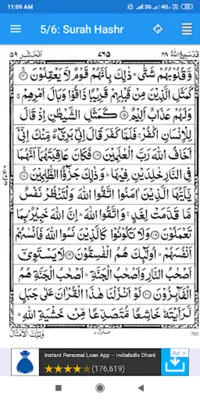 11:09 AM
5/6: Surah Hashr
قد سمع الله ٢٨ ٧٩٥ الحشر ٥٩
وَقُلُوْبُهُمْ شَتّٰى ذٰلِكَ بِاَنَّهُمْ قَوْمٌ لَّا يَعْقِلُوْنَ
كَمَثَلِ الَّذِيْنَ مِنْ قَبْلِهِمْ قَرِيْبًا ذَاقُوْا وَبَالَ اَمْرِهِمْ
وَلَهُمْ عَذَابٌ اَلِيْمٌ كَمَثَلِ الشَّيْطٰنِ اِذْ قَالَ
لِلْاِنْسَانِ اكْفُرْ فَلَمَّا كَفَرَ قَالَ اِنِّيْ بَرِيْٓءٌ مِّنْكَ اِنِّيْٓ
اَخَافُ اللّٰهَ رَبَّ الْعٰلَمِيْنَ فَكَانَ عَاقِبَتَهُمَآ اَنَّهُمَا
فِي النَّارِ خَالِدَيْنِ فِيْهَا وَذٰلِكَ جَزٰٓؤُا الظّٰلِمِيْنَ
يٰٓاَيُّهَا الَّذِيْنَ اٰمَنُوا اتَّقُوا اللّٰهَ وَلْتَنْظُرْ نَفْسٌ
مَّا قَدَّمَتْ لِغَدٍ وَاتَّقُوا اللّٰهَ اِنَّ اللّٰهَ خَبِيْرٌۢ بِمَا
تَعْمَلُوْنَ وَلَا تَكُوْنُوْا كَالَّذِيْنَ نَسُوا اللّٰهَ فَاَنْسٰىهُمْ
اَنْفُسَهُمْ اُولٰٓئِكَ هُمُ الْفٰسِقُوْنَ لَا يَسْتَوِيْٓ
اَصْحٰبُ النَّارِ وَاَصْحٰبُ الْجَنَّةِ اَصْحٰبُ الْجَنَّةِ هُمُ
الْفَآئِزُوْنَ لَوْ اَنْزَلْنَا هٰذَا الْقُرْاٰنَ عَلٰى جَبَلٍ
لَّرَاَيْتَهٗ خَاشِعًا مُّتَصَدِّعًا مِّنْ خَشْيَةِ اللّٰهِ
وَتِلْكَ الْاَمْثَالُ
Instant Personal Loan App – Indiabulls Dhani
(176,619)
Ad